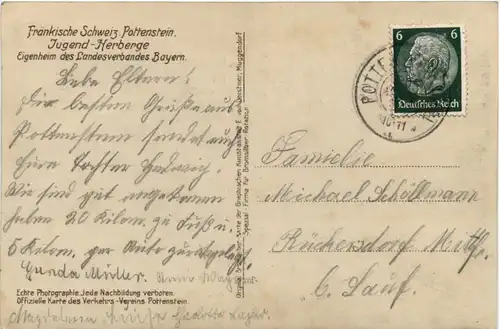 Fränkische Schweiz. Pottenstein.
Jugend-Herberge
Eigenheim des Landesverbandes Bayern.
Liebe Eltern!
Die besten Grüße aus
Pottenstein sendet euch
Eure Tochter Hedwig.
Wir sind gut angekommen
haben 20 Kilom. zu Fuß u.
5 Kilom. per Auto zurückgelegt.
Gunda Müller.
Echte Photographie. Jede Nachbildung verboten.
Offizielle Karte des Verkehrs-Vereins Pottenstein.
Magdalena
6 6
Deutsches Reich
POTTE
Familie
Michael Schöttmann
Rückersdorf Mittfr.
b. Lauf.